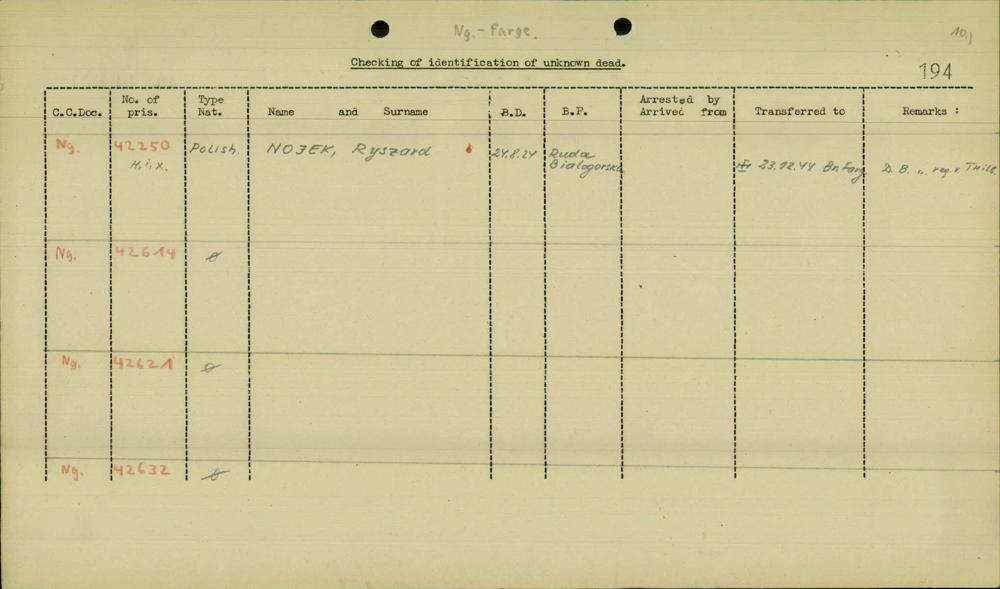 Ng.- Farge.
10,)
Checking of identification of unknown dead.
194
C.C.Doc. No. of pris. Type Nat. Name and Surname B.D. B.P. Arrested by Arrived from Transferred to Remarks :
Ng. 42250 Polish. NOJEK, Ryszard 24.8.24 Ruda
H.i.x. Bialogorska 23.12.44 Br. Farg D. B.
Ng. 42614 θ
Ng. 42621 θ
Ng. 42632 θ